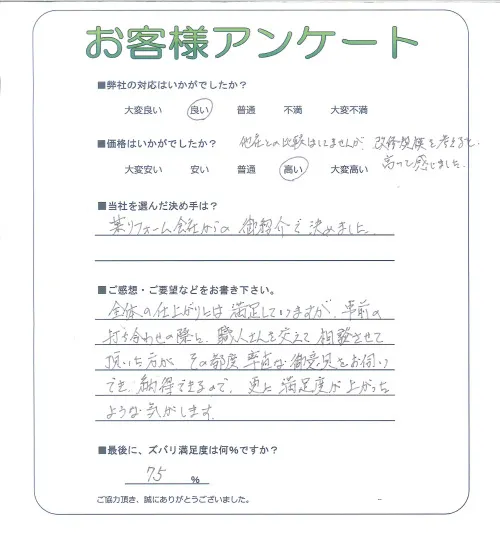 お客様アンケート
■弊社の対応はいかがでしたか?
大変良い 良い 普通 不満 大変不満
■価格はいかがでしたか? 他社との比較はしてませんが、改修規模を考えると
大変安い 安い 普通 高い 大変高い 高いと感じました。
■当社を選んだ決め手は?
某リフォーム会社からの御紹介で決めました。
■ご感想・ご要望などをお書き下さい。
全体の仕上がりには満足していますが、事前の
打ち合わせの際に、職人さんを交えて相談させて
頂いた方が その都度率直な御意見をお伺い
でき、納得できるので、更に満足度が上がった
ような気がします。
■最後に、ズバリ満足度は何%ですか?
75 %
ご協力頂き、誠にありがとうございました。